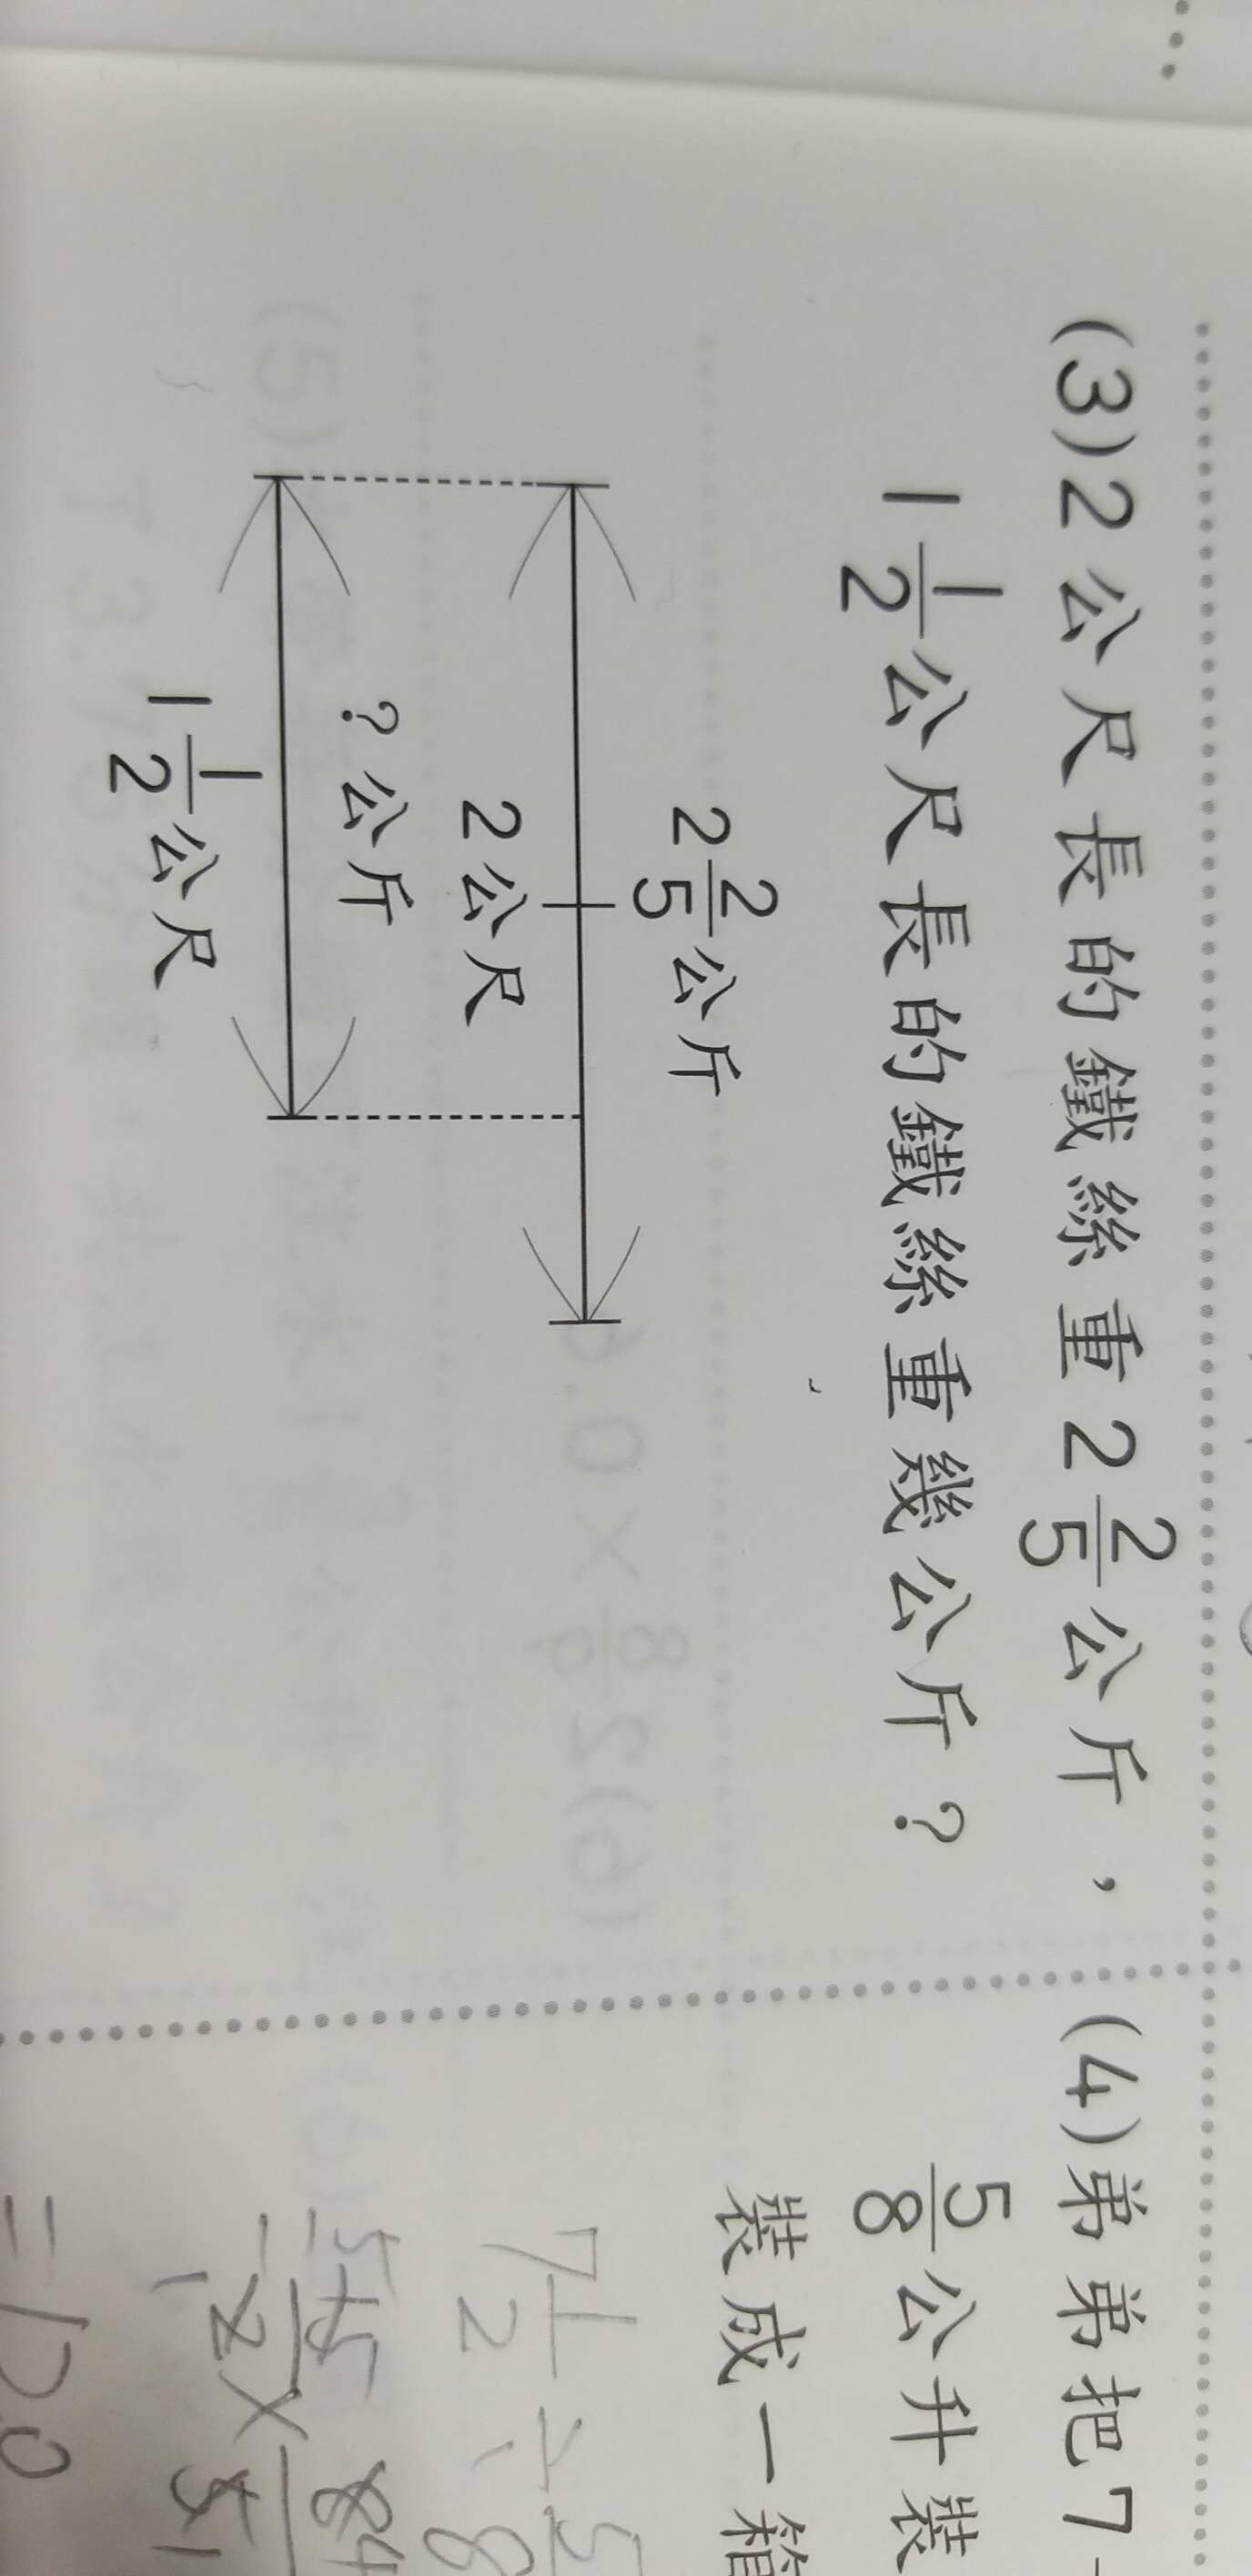 (3)2公尺長的鐵絲重2 2/5公斤，
1 1/2公尺長的鐵絲重幾公斤？
2 2/5公斤
2公尺
?公斤
1 1/2公尺
(4)弟弟把7
5/8公升裝
裝成一箱
7 1/2 ÷ 5/8